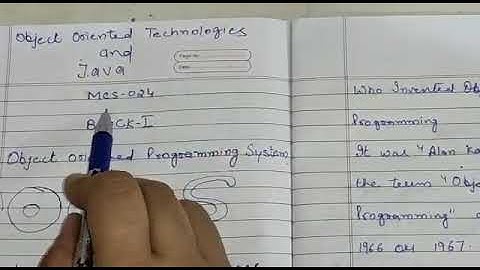 Object Oriented Technologies
and
Java
MCS-024
BLOCK-I
Object Oriented Programming System
O
S
Who Invented
Programming
It was "Alan
the term
Programming"
1966 or 1967.